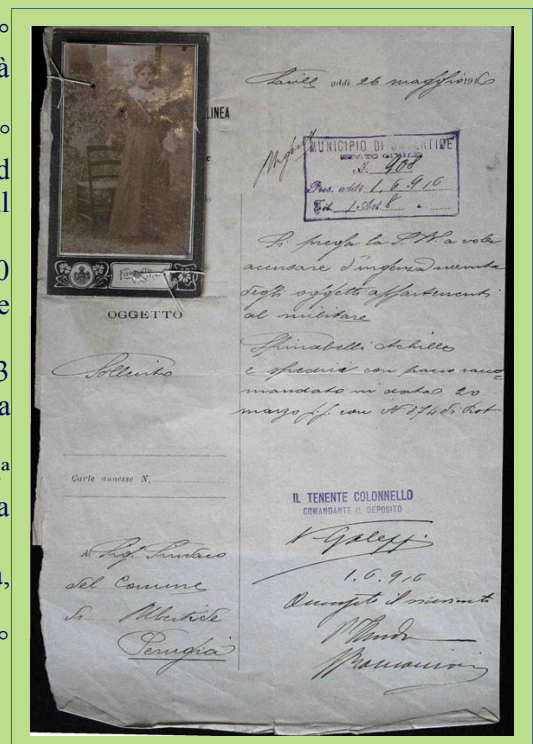 °
à
°
d
l
0
e
3
a
a
a
,
°
LINEA
addì 26 maggio 1916
MUNICIPIO DI UMBERTIDE
STATO CIVILE
N. 908
Pros. addì 1.6.916
Cat. 1 Art. 8
OGGETTO
Sollecito
Si prega la S.V. a voler
accusare d'urgenza ricevuta
degli oggetti appartenenti
al militare
Spinabelli Achille
e spediti con pacco racco=
mandato in data 20
marzo con N 874 di Prot
Carte annesse N.
IL TENENTE COLONNELLO
COMANDANTE IL DEPOSITO
Galeffi
1.6.916
il
Al Sigr Sindaco
del Comune
di Umbertide
Perugia